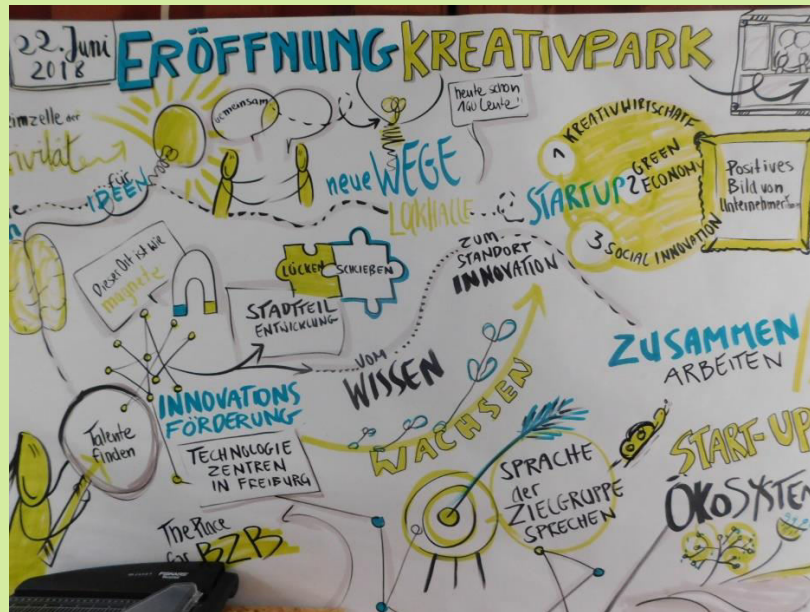 22. Juni
2018
ERÖFFNUNG KREATIVPARK
imzelle der
ivität
...für
IDEEN
gemeinsam
heute schon
100 Leute!
neue WEGE
LOKHALLE
STARTUP
1 KREATIVWIRTSCHAFT
2 GREEN
ECONOMY
3 SOCIAL INNOVATION
Positives
Bild von
Unternehmertum
Dieser Ort ist wie
magnete
LÜCKEN SCHLIEßEN
STADTTEIL
ENTWICKLUNG
ZUM
STANDORT
INNOVATION
...VOM
WISSEN
WACHSEN
ZUSAMMEN
ARBEITEN
INNOVATIONS
FÖRDERUNG
Talente
finden
TECHNOLOGIE
ZENTREN
IN FREIBURG
SPRACHE
der
ZIELGRUPPE
SPRECHEN
START-UP
ÖKOSYSTEM
The Place
for BZB